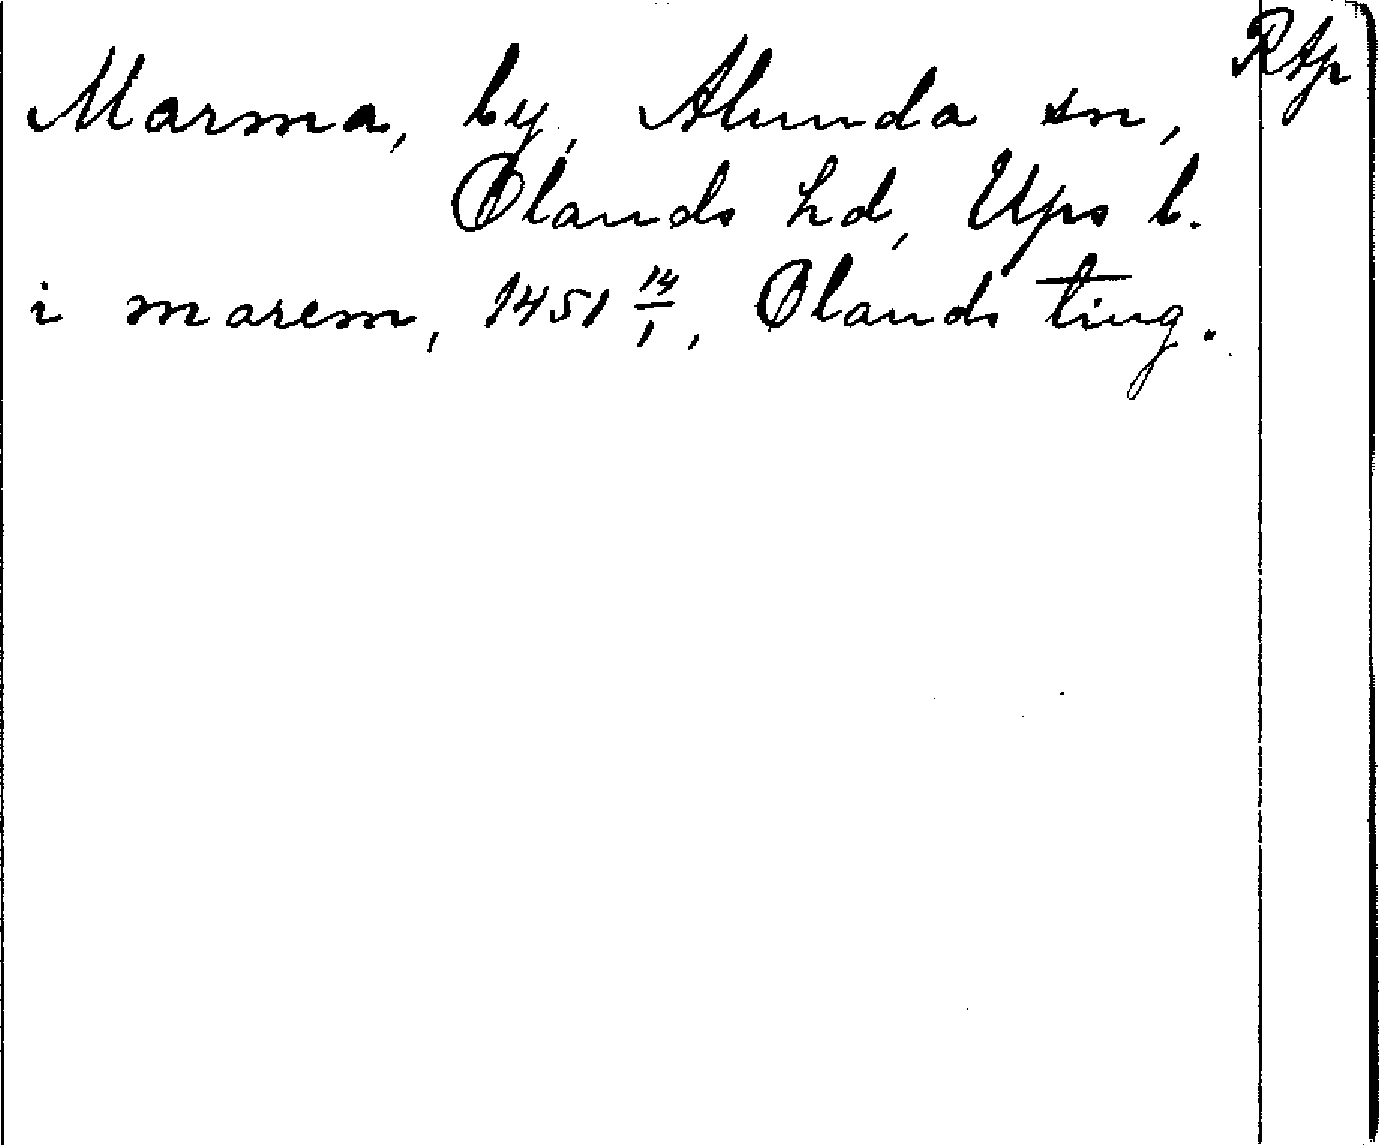 Rtp
Marma, by, Alunda sn,
Olands hd, Ups l.
i marem, 1451 14/1, Olands ting.